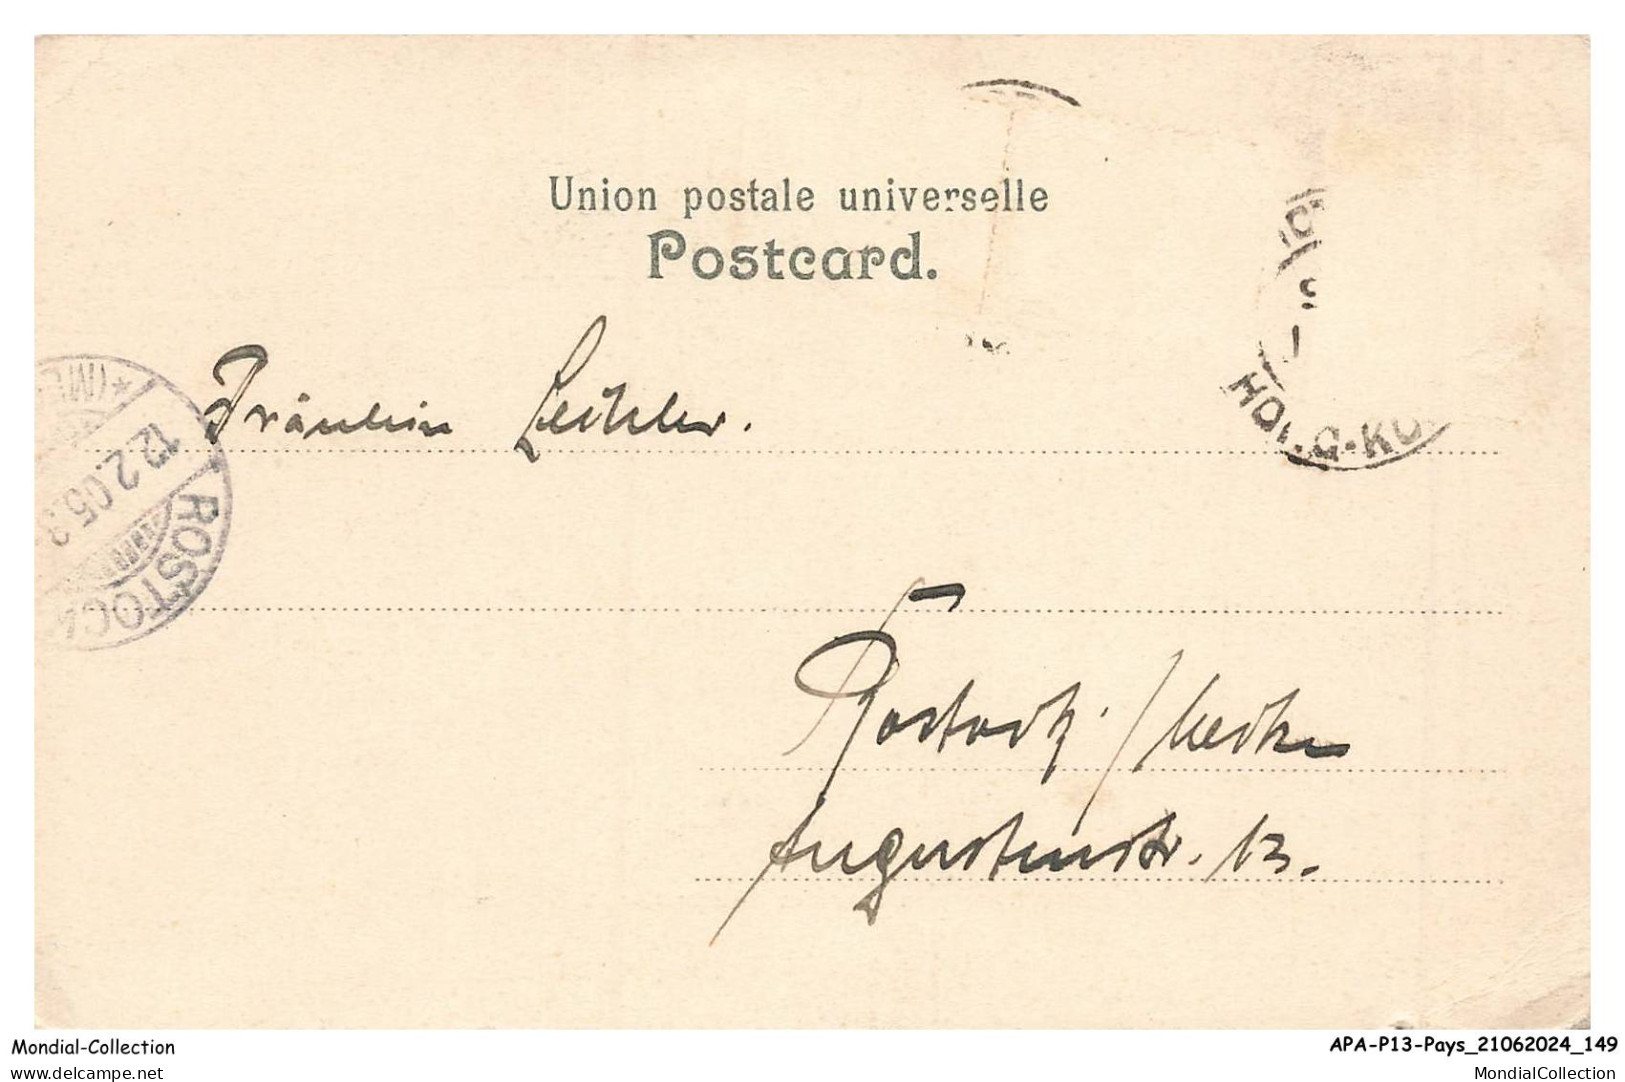 Union postale universelle
Postcard.
Fräulein
12.2.05.
ROSTOC
HON G-KO
Rostock i/Meckl
Augustenstr. 13.
Mondial-Collection
delcampe.net
APA-P13-Pays_21062024_149
MondialCollection